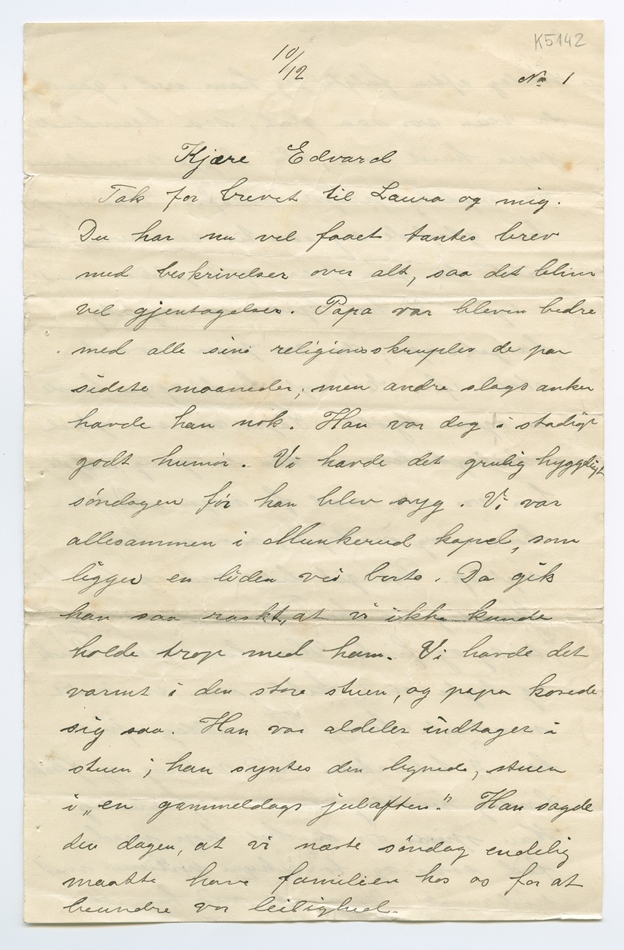 K5142
10/12
No 1
Kjære Edvard
Tak for brevet til Laura og mig.
Du har nu vel faaet tantes brev
med beskrivelser over alt, saa det bliver
vel gjentagelser. Papa var bleven bedre
med alle sine religionsskrupler de par
sidste maaneder; men andre slags anker
havde han nok. Han var dog i stadigt
godt humør. Vi havde det grulig hyggeligt
søndagen før han blev syg. Vi var
allesammen i Munkerud kapel, som
ligger en liden vei borte. Da gik
han saa raskt, at vi ikke kunde
holde trop med ham. Vi havde det
varmt i den store stuen, og papa kosede
sig saa. Han var aldeles indtaget i
stuen; han syntes den lignede, stuen
i „en gammeldags julaften." Han sagde
den dagen, at vi næste søndag endelig
maatte have familien hos os for at
beundre vor leilighed.